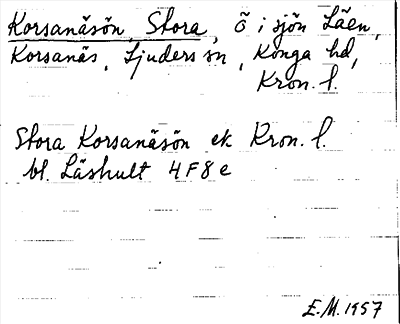 Korsanäsön, Stora, ö i sjön Läen,
Korsanäs, Ljuders sn, Konga hd,
Kron. l.
Stora Korsanäsön ek Kron. l.
bl. Läshult 4F8e
E.M. 1957